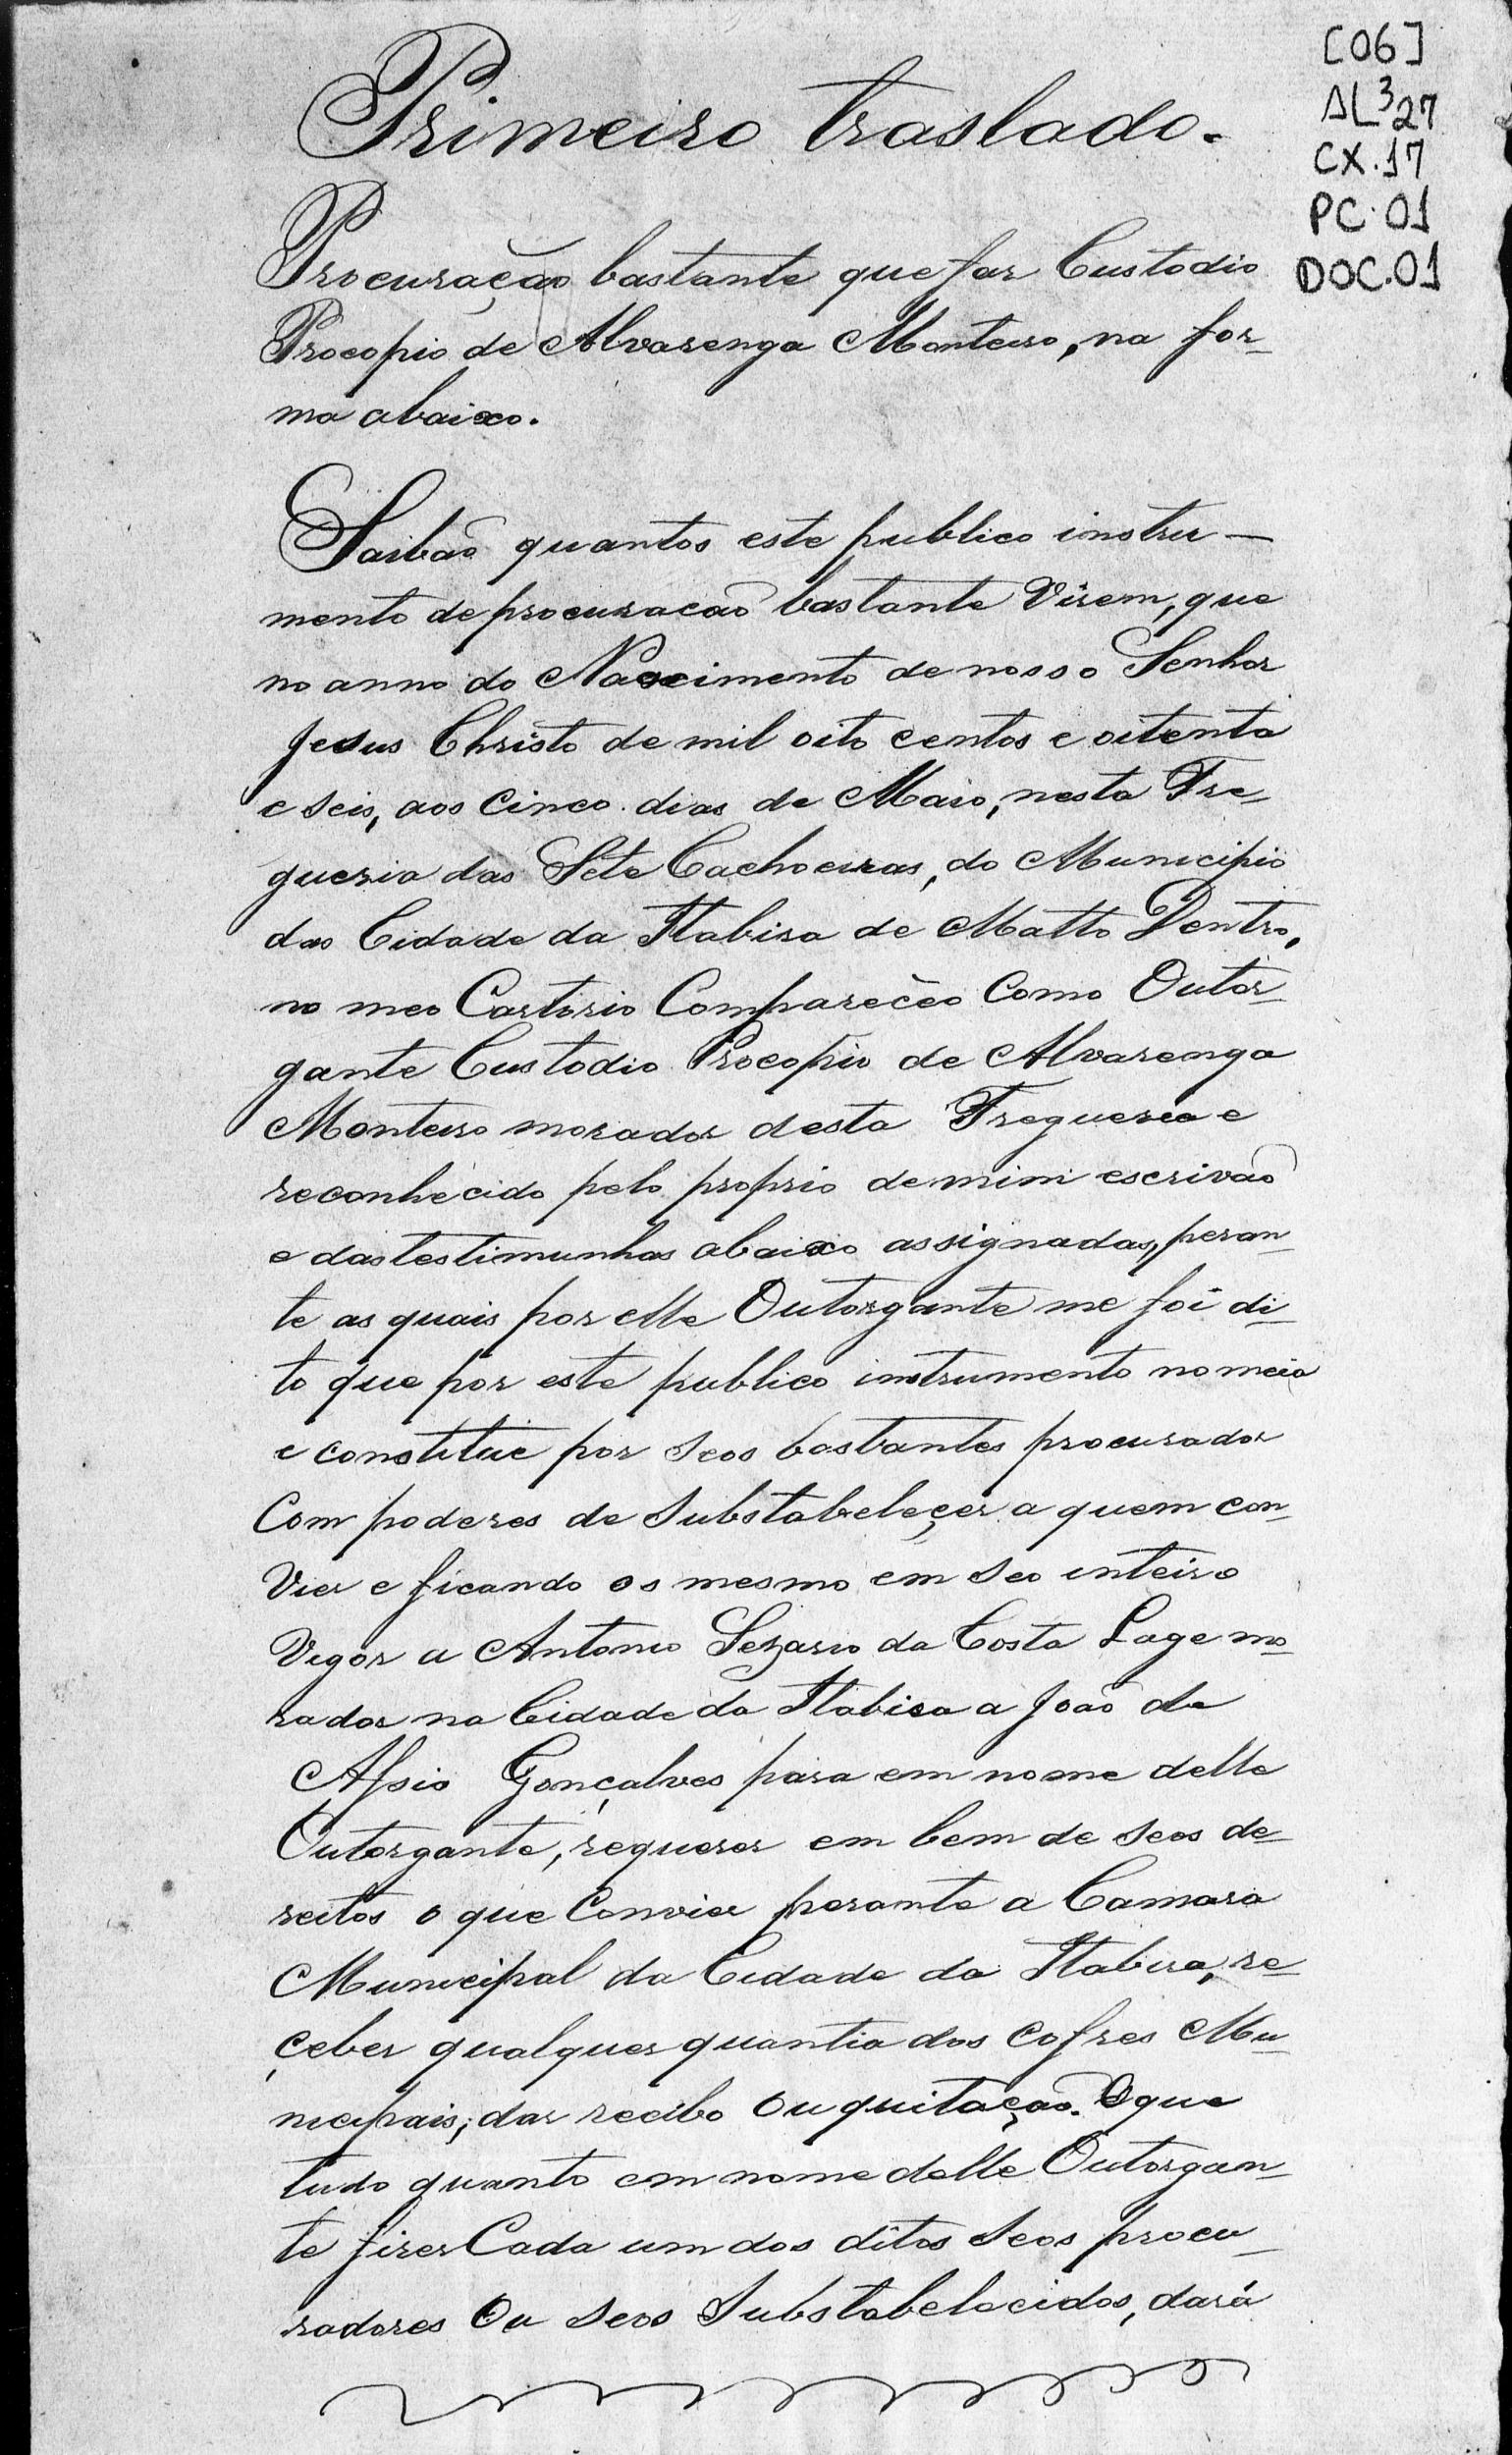 [06]
AL³27
CX.17
PC.01
DOC.01
Primeiro traslado.
Procuração bastante que far Custodio
Procopio de Alvarenga Monteiro, na for-
ma abaixo.
Saibão quantos este publico instru-
mento de procuracão bastante Virem, que
no anno do Nascimento de nosso Senhor
Jesus Christo de mil oito centos e oitenta
e seis, aos cinco dias de Maio, nesta Fre-
gueria das Sete Cachoeiras, do Municipio
das Cidade da Itabira de Matto Dentro,
no meo Cartorio Compareçeo Como Outor-
gante Custodio Procopio de Alvarenga
Monteiro morador desta Fregueria e
reconhecido pelo proprio de mim escrivão
e das testimunhas abaixo assignadas, peran-
te as quais por elle Outorgante me foi di-
to que por este publico instrumento nomeia
e constitue por seos bastantes procurador
Com poderes de Substabeleçer a quem con-
Vier e ficando os mesmo em seo inteiro
Vigor a Antonio Sezario da Costa Lage mo-
rador na Cidade da Itabira a João de
Gonçalves para em nome delle
Outorgante, requerer em bem de seos de-
reitos o que Convier perante a Camara
Municipal da Cidade da Itabira, re-
çeber qualquer quantia dos Cofres Mu-
nicipais; dar recibo ou quitação. E que
tudo quanto em nome delle Outorgan-
te firer Cada um dos ditos Seos procu-
radores Ou seos Substabelecidos, dará